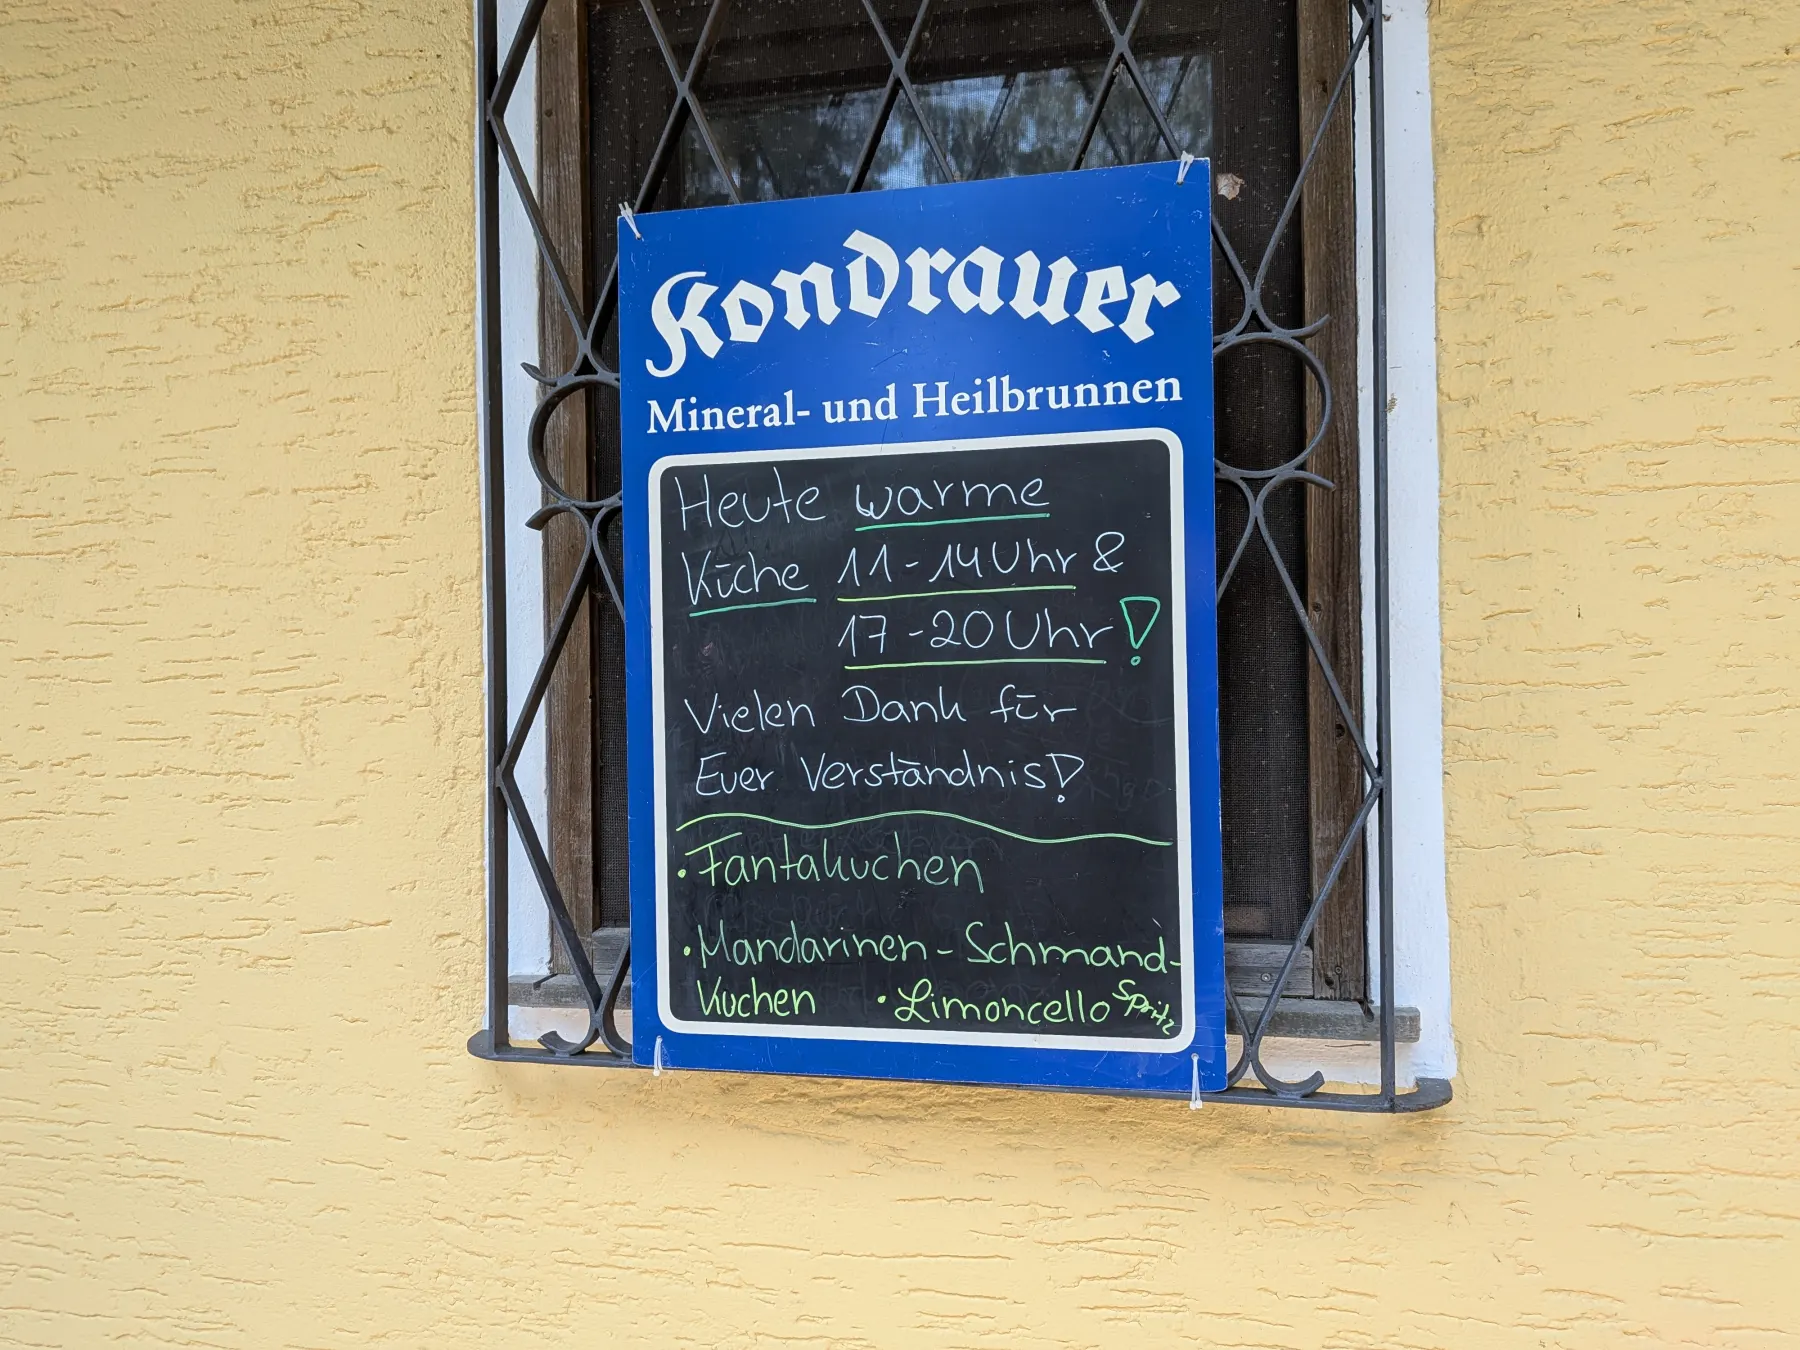 Kondrauer
Mineral- und Heilbrunnen
Heute warme
Küche 11-14 Uhr &
17-20 Uhr!
Vielen Dank für
Euer Verständnis!
• Fantakuchen
• Mandarinen-Schmand-
Kuchen • Limoncello Spritz